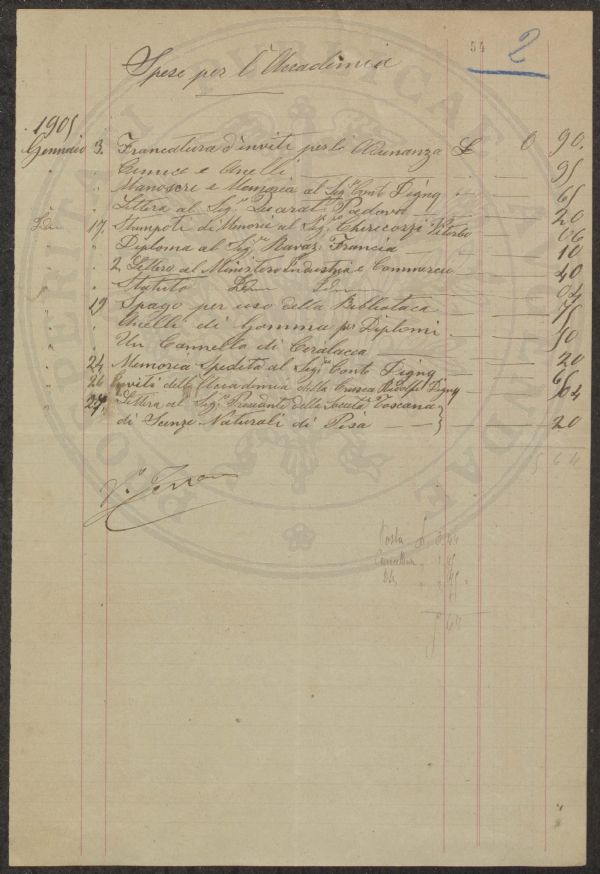 54 2
Spese per l'Accademia
1905
Gennaio 3. Francatura d'inviti per le Adunanza £ 0 90.
" " e Anelli 95
" " e Memoria al Sig. Conte Digny 65
" Lettera al Sig. Padova 20
Idm 17. Stampati di Memorie al Sig. Chericozzi Viterbo 06
" " Diploma al Sig. Ravaz Francia 10
" " 2 Lettere al Ministero Industria e Commercio 40
" " Statuto Idm Idm 04
" 19 Spago per uso della Biblioteca 75
" " Anelli di Gomma per Diplomi
" " Un Cannello di Ceralacca 50
" 24 Memoria Spedita al Sig. Conte Digny 20
" 26 Inviti della Accademia della Crusca Digny 64
" 27. Lettera al Sig. Presidente della Società Toscana
di Scienze Naturali di Pisa 20
5 64
Posta £
Cancelleria
5 64